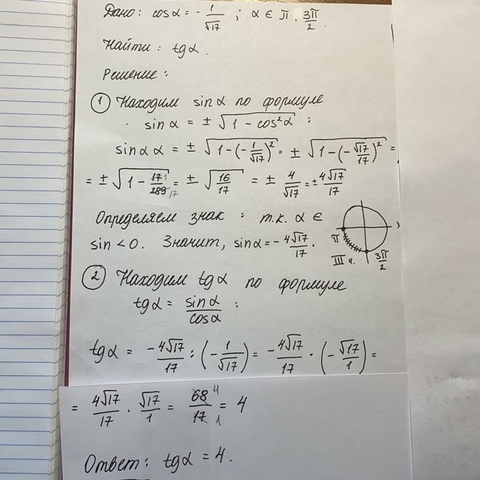 Дано: cosα = - 1/√17 ; α ∈ π, 3π/2
Найти: tgα.
Решение:
① Находим sinα по формуле
sinα = ± √(1 - cos²α) :
sinα α = ± √(1-(-1/√17)²) = ± √(1-(-√17/17)²) =
= ± √(1 - 17 1/289 17) = ± √(16/17) = ± 4/√17 = ± 4√17/17
Определяем знак : т.к. α ∈
sin < 0. Значит, sinα = - 4√17/17.
π
III ч.
3π/2
② Находим tgα по формуле
tgα = sinα/cosα :
tgα = -4√17/17 : (-1/√17) = -4√17/17 · (-√17/1) =
= 4√17/17 · √17/1 = 68 4/17 1 = 4
Ответ: tgα = 4.